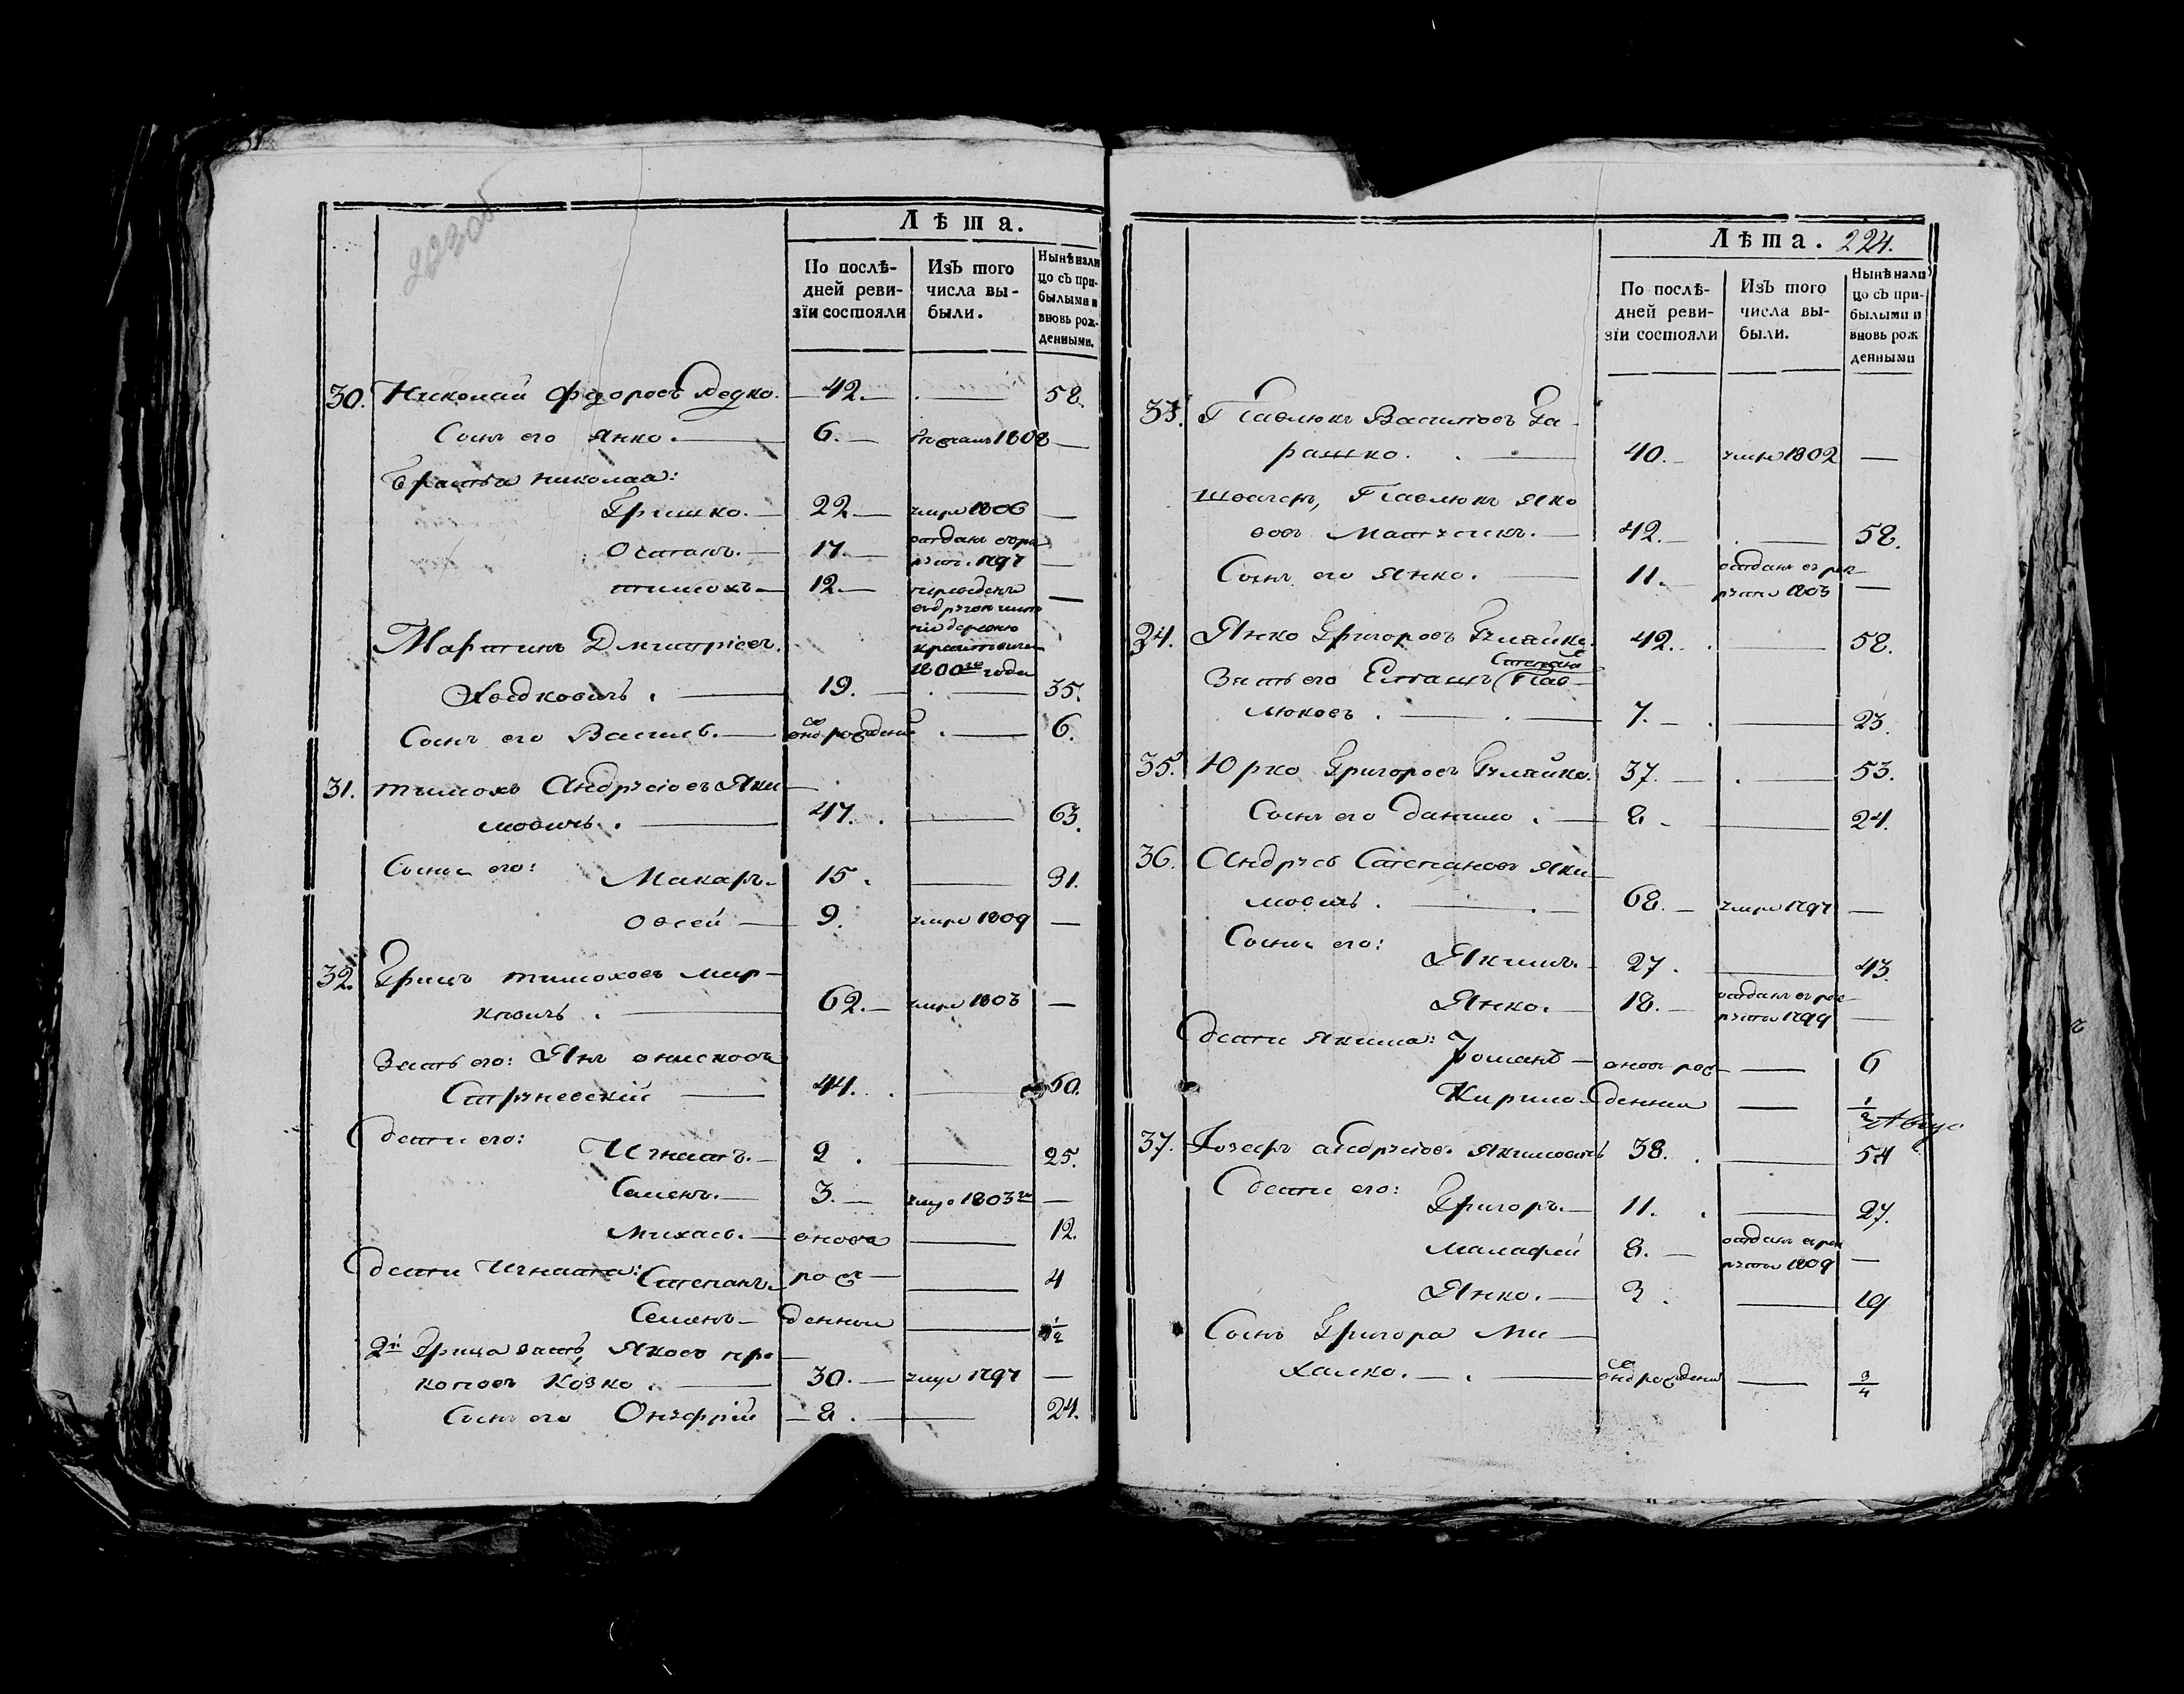 223об
Лѣта.
По послѣ-
дней реви-
зїи состояли
Изъ того
числа вы-
были.
Нынѣ нали
цо съ при-
былыми и
вновь рож-
денными.
30. Николай Федоровъ Редко. 42. — 58.
Сынъ его Янко. 6. 1808 —
Братья Николая:
Гришко. 22 умре 1806 —
Остапъ. 17. отданъ въ рек
руты 1797 —
Тимохъ 12 переведенъ
въ другое име
ніе деревню
1800го года —
Мартинъ Дмитріевъ
Ходковичъ. 19. — 35.
Сынъ его Василь. вновь рожденъ — 6.
31. Тимохъ Андрусіовъ Яки
мовичъ. 47. — 63.
Сыны его: Макаръ. 15. — 31.
Овсей 9. умре 1809 —
32. Грицъ Тимоховъ Мир-
ковичъ. 62. умре 1803 —
Зять его: Янъ Онисковъ
Стружевскій 44. — 60.
Дети его: Игнатъ. 9. — 25.
Семенъ. 3. умре 1803го —
Михась. вновь — 12.
Дети Игната: Степанъ. рож — 4
Семенъ денныи — 1/2
2й Грица зять, Яковъ Про
коповъ Козко. 30. умре 1797 —
Сынъ его Онуфрій 8. — 24.
Лѣта. 224.
По послѣ-
дней реви-
зїи состояли
Изъ того
числа вы-
были.
Нынѣ нали
цо съ при-
былыми и
вновь рож
денными
33. Павлюкъ Василіовъ Га
рашко. 40. умре 1802 —
Швагеръ, Павлюкъ Яко
вовъ 42. — 58.
Сынъ его Янко. 11. отданъ въ рек
руты 1803 —
34. Янко Григоровъ Гуляйко. 42. — 58.
Степанъ
Зять его Пав
люковъ. 7. — 23.
35. Юрко Григоровъ Гуляйко. 37. — 53.
Сынъ его Данило. 8 — 24.
36. Андрусь Степановъ Яки
мовичъ. 68. умре 1797 —
Сыны его: Якимъ. 27. — 43.
Янко. 18. отданъ въ рек
руты 1799 —
Дети Якима: Романъ вновь рож — 6
Кирило денныи — 1/2
37. Іозефъ Андрусіовъ Якимовичъ 38. — 54
Дети его: Григоръ. 11. — 27.
Малафей 8. отданъ въ рек
руты 1809 —
Янко. 3. — 19
Сынъ Григора Ми
халко. вновь рожденъ — 3/4